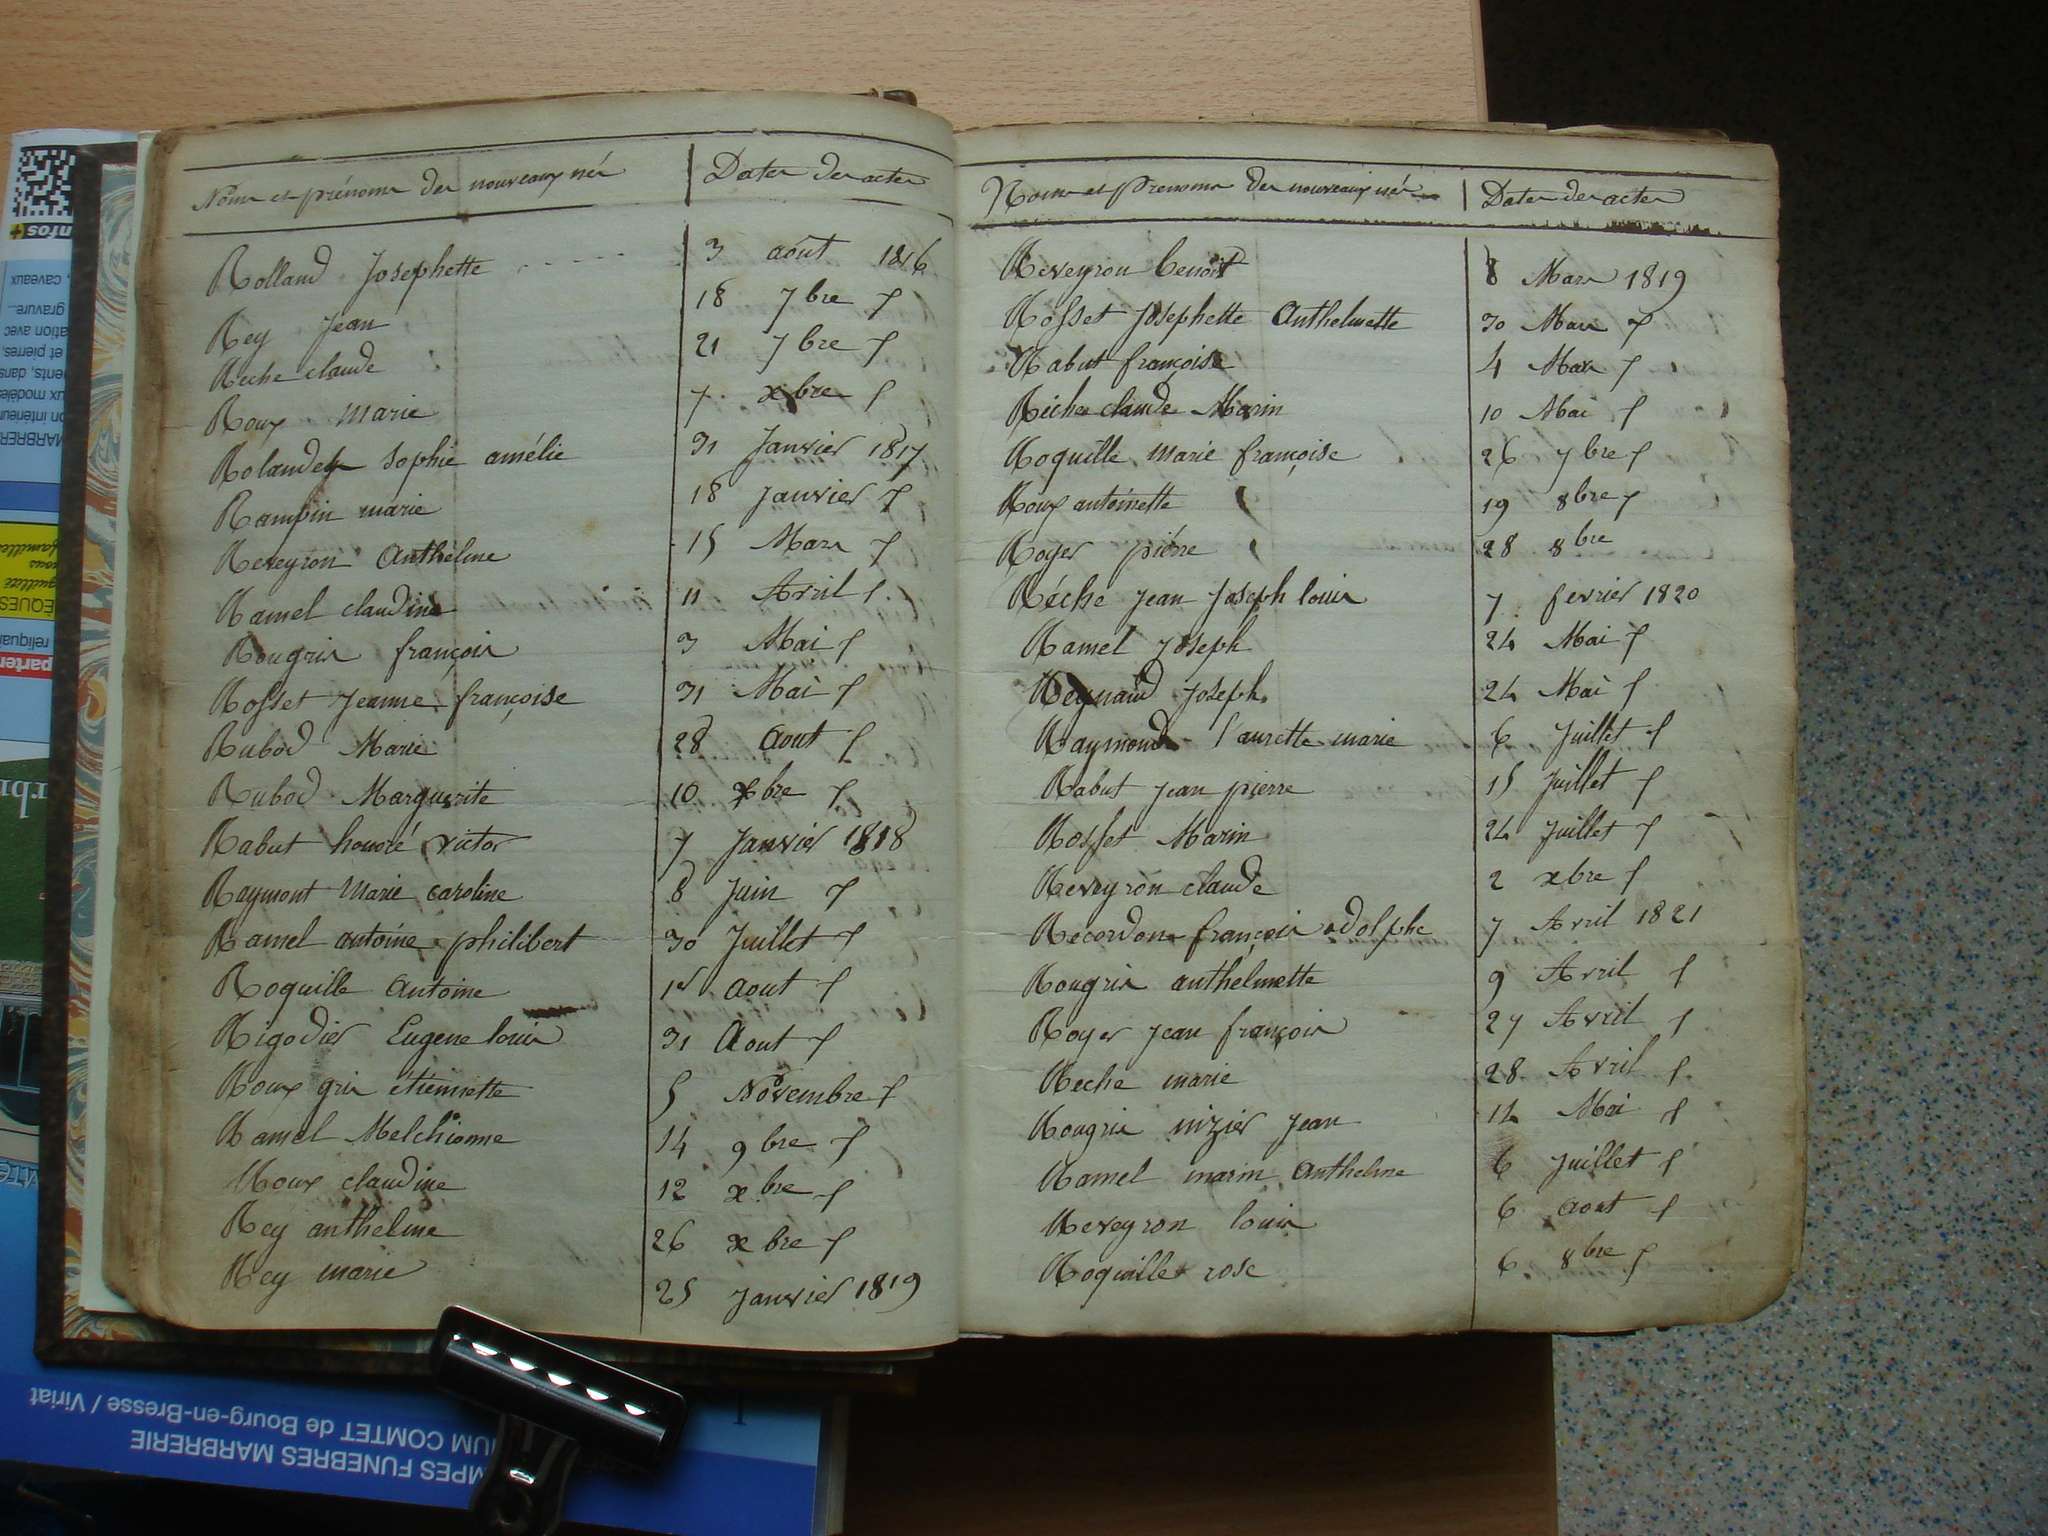 Noms et prénoms des nouveaux nés | Dates des actes
Rolland Josephette 3 août 1816
Rey Jean 18 7bre
Reche claude 21 7bre
Roux Marie 7 xbre
Rolandez Sophie amélie 31 Janvier 1817
Rampin marie 18 Janvier
Reveyron Anthelme 15 Mars
Ramel claudine 11 Avril
Rougris françois 3 Mai
Rosset Jeanne françoise 31 Mai
Rubod Marie 28 Aout
Rubod Marguerite 10 xbre
Rabut honoré victor 7 Janvier 1818
Raymont Marie caroline 8 Juin
Ramel antoine philibert 30 Juillet
Roquille Antoine Aout
Rigodier Eugene louis 31 Aout
Roux gris étiennette 5 Novembre
Ramel Melchionne 14 9bre
Roux claudine 12 xbre
Rey anthelme 26 xbre
Rey marie 25 Janvier 1819
Noms et prenoms des nouveaux nés | Dates des actes
Reveyron benoit 8 Mars 1819
Rosset Josephette Anthelmette 30 Mars
Rabut françoise 4 Mars
Réche claude Marin 10 Mai
Roquille Marie françoise 26 7bre
Roux antoinette 19 8bre
Royer piérre 28 8bre
Réche Jean Joseph louis 7 fevrier 1820
Ramel Joseph 24 Mai
Reynaud Joseph 24 Mai
Raymond laurette marie 6 Juillet
Rabut Jean pierre 15 Juillet
Rosset Marin 24 Juillet
Reveyron claude 2 xbre
Recordon françois adolphe 7 Avril 1821
Rougris anthelmette 9 Avril
Royer Jean françois 27 Avril
Reche marie 28 Avril
Rougris nizier Jean 14 Mai
Ramel marin Anthelme 6 Juillet
Reveyron louis 6 aout
Roquille rose 6 8bre
infos+
caveaux
gravure...
et pierres,
MPES FUNEBRES MARBRERIE
UM COMTET de Bourg-en-Bresse / Viriat